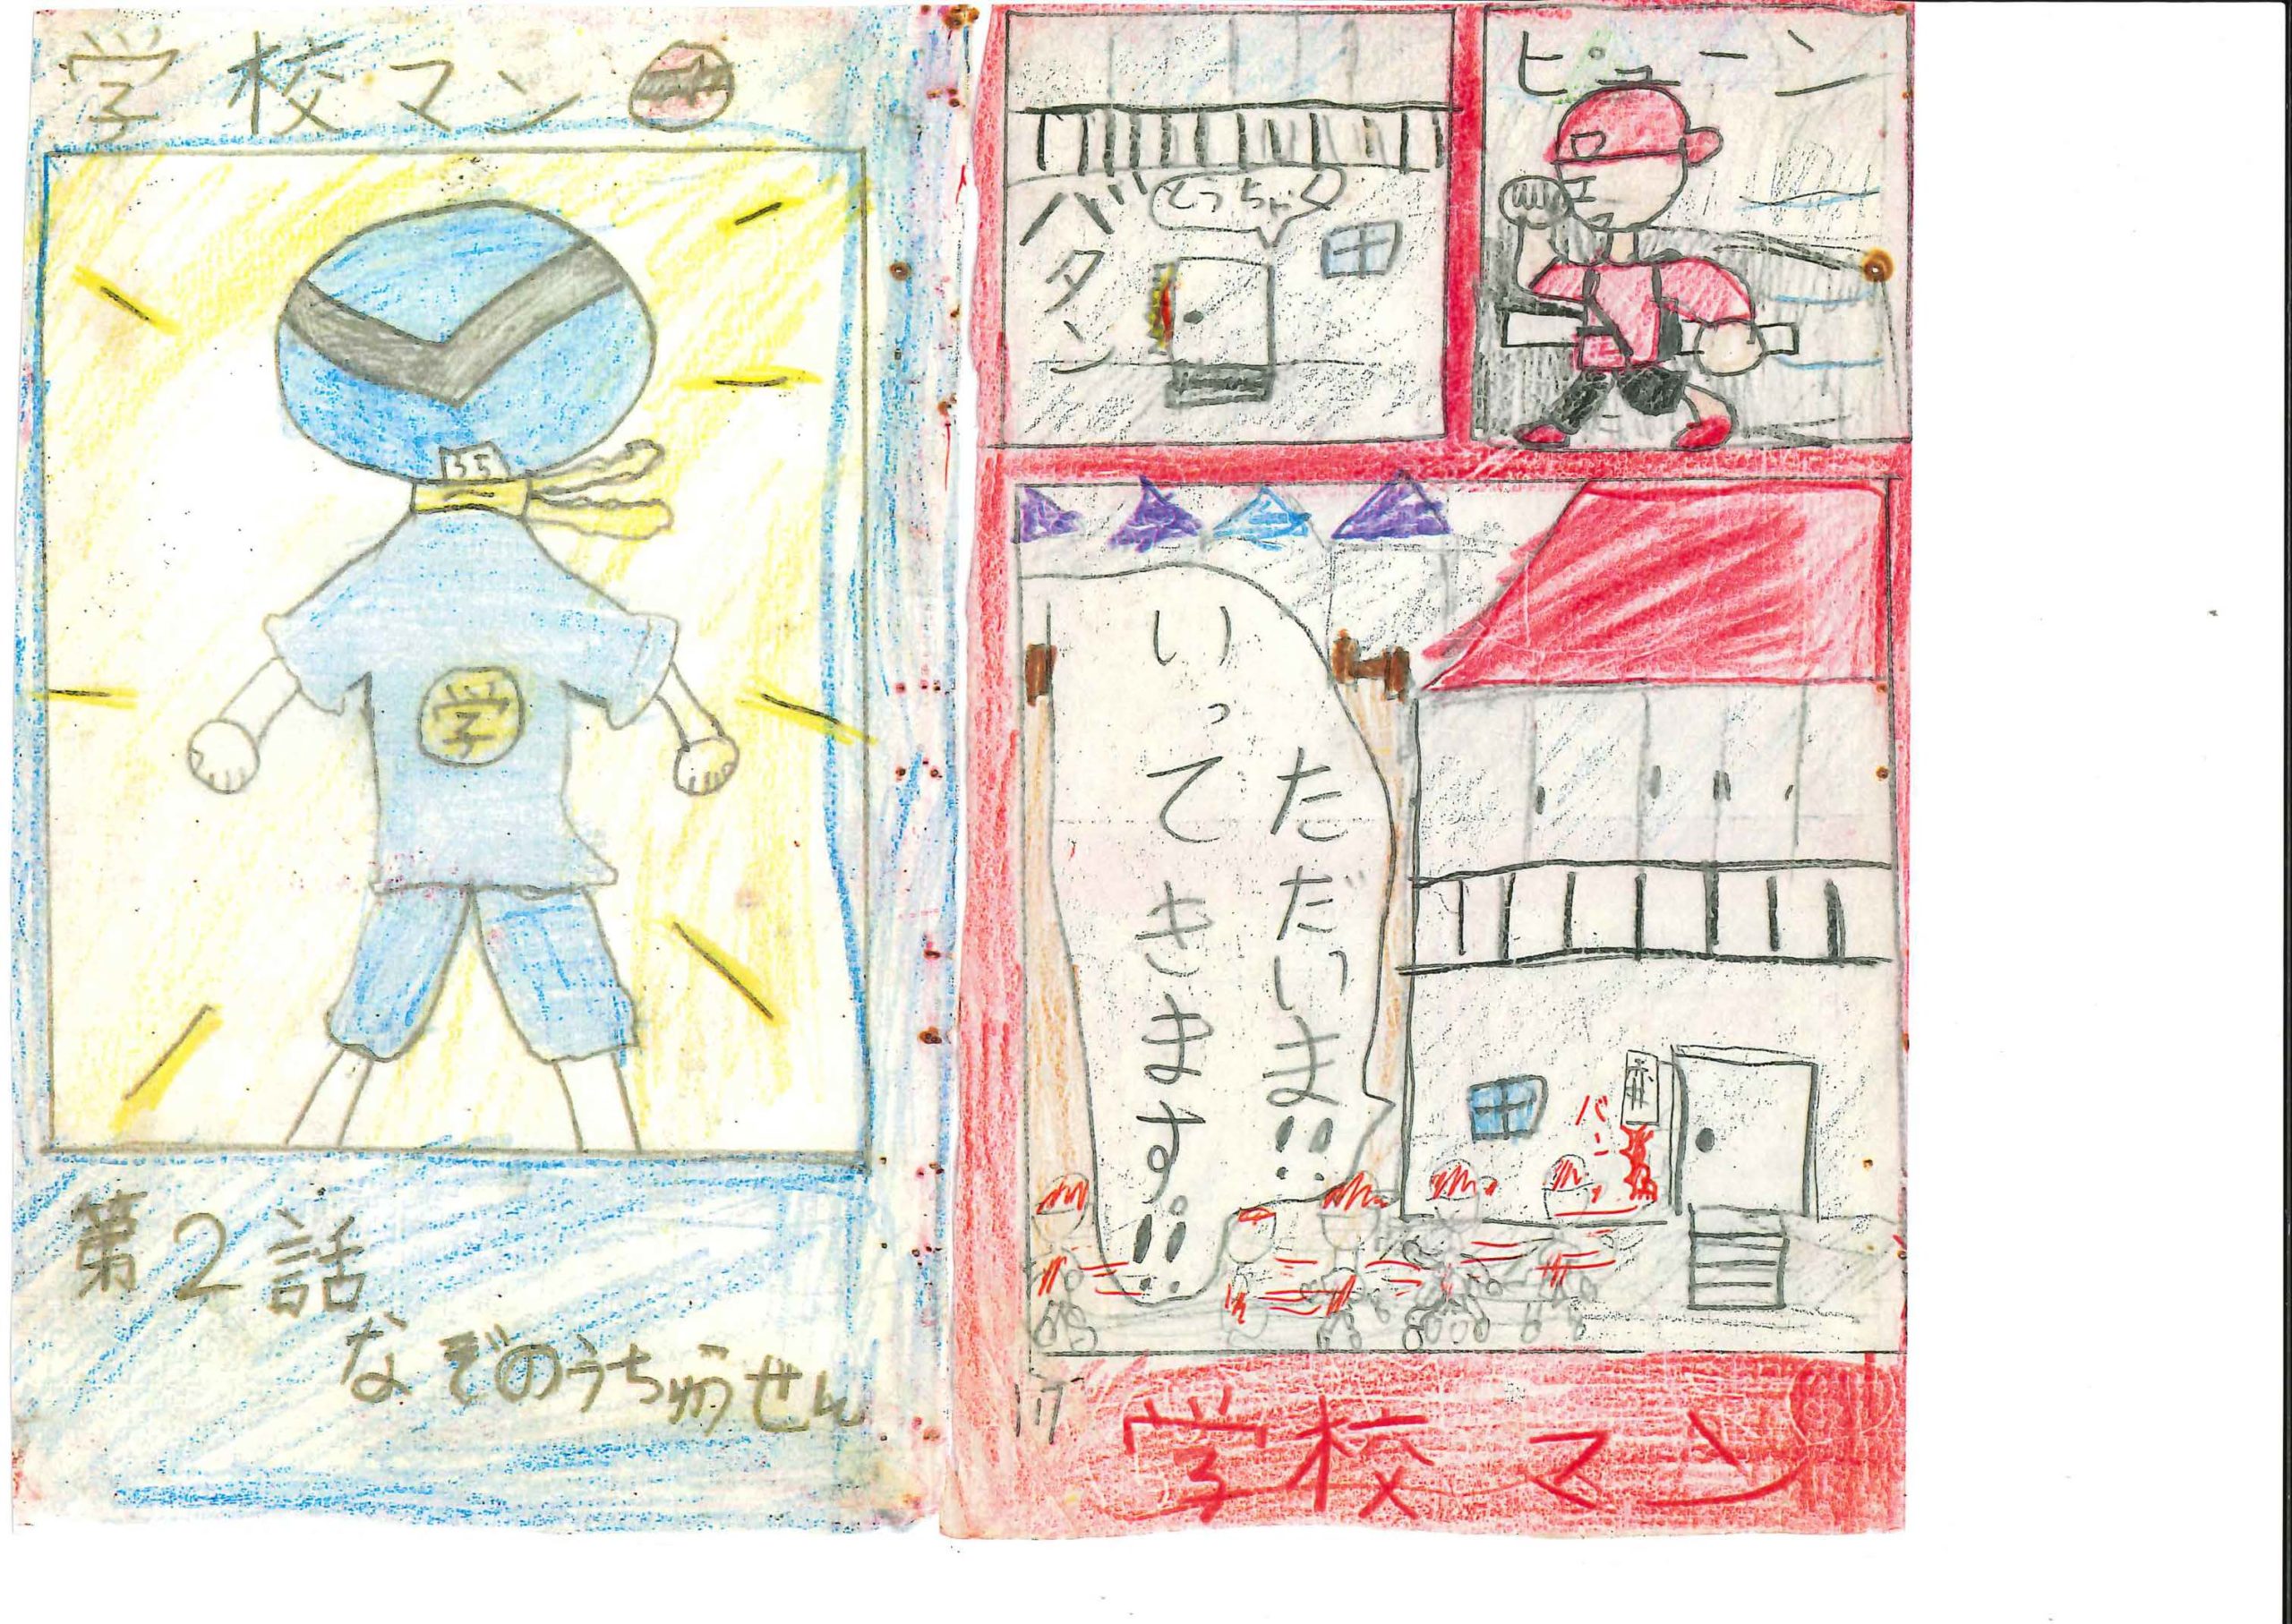 ピューン
とうちゃく
バタン
バン
ただいま!!
いってきます!!
学校マン
学校マン
学
第2話
なぞのうちゅうせん